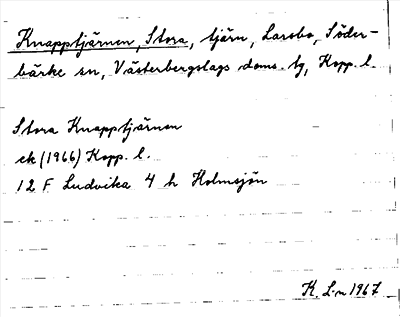 Knapptjärnen, Stora, tjärn, Larsbo, Söder-
bärke sn, Västerbergslags doms. tg, Kopp. l.
Stora Knapptjärnen
ek (1966) Kopp. l.
12 F Ludvika 4 h Holmsjön
K. L-n 1967